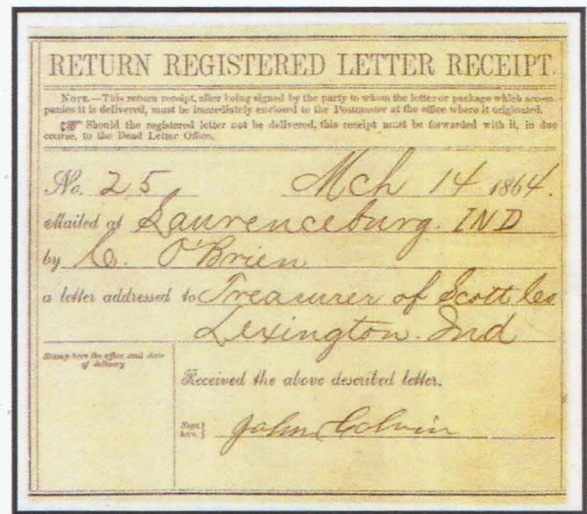 RETURN REGISTERED LETTER RECEIPT.
NOTE.—This return receipt, after being signed by the party to whom the letter or package which accom-
panies it is delivered, must be immediately enclosed to the Postmaster at the office where it originated.
☞ Should the registered letter not be delivered, this receipt must be forwarded with it, in due
course, to the Dead Letter Office.
No. 25 Mch 14 1864.
Mailed at Lawrenceburg. IND
by C. O'Brien
a letter addressed to Treasurer of Scott Co
Lexington. Ind
Stamp here the office and date
of delivery
Received the above described letter.
Sign
here. } John Colvin